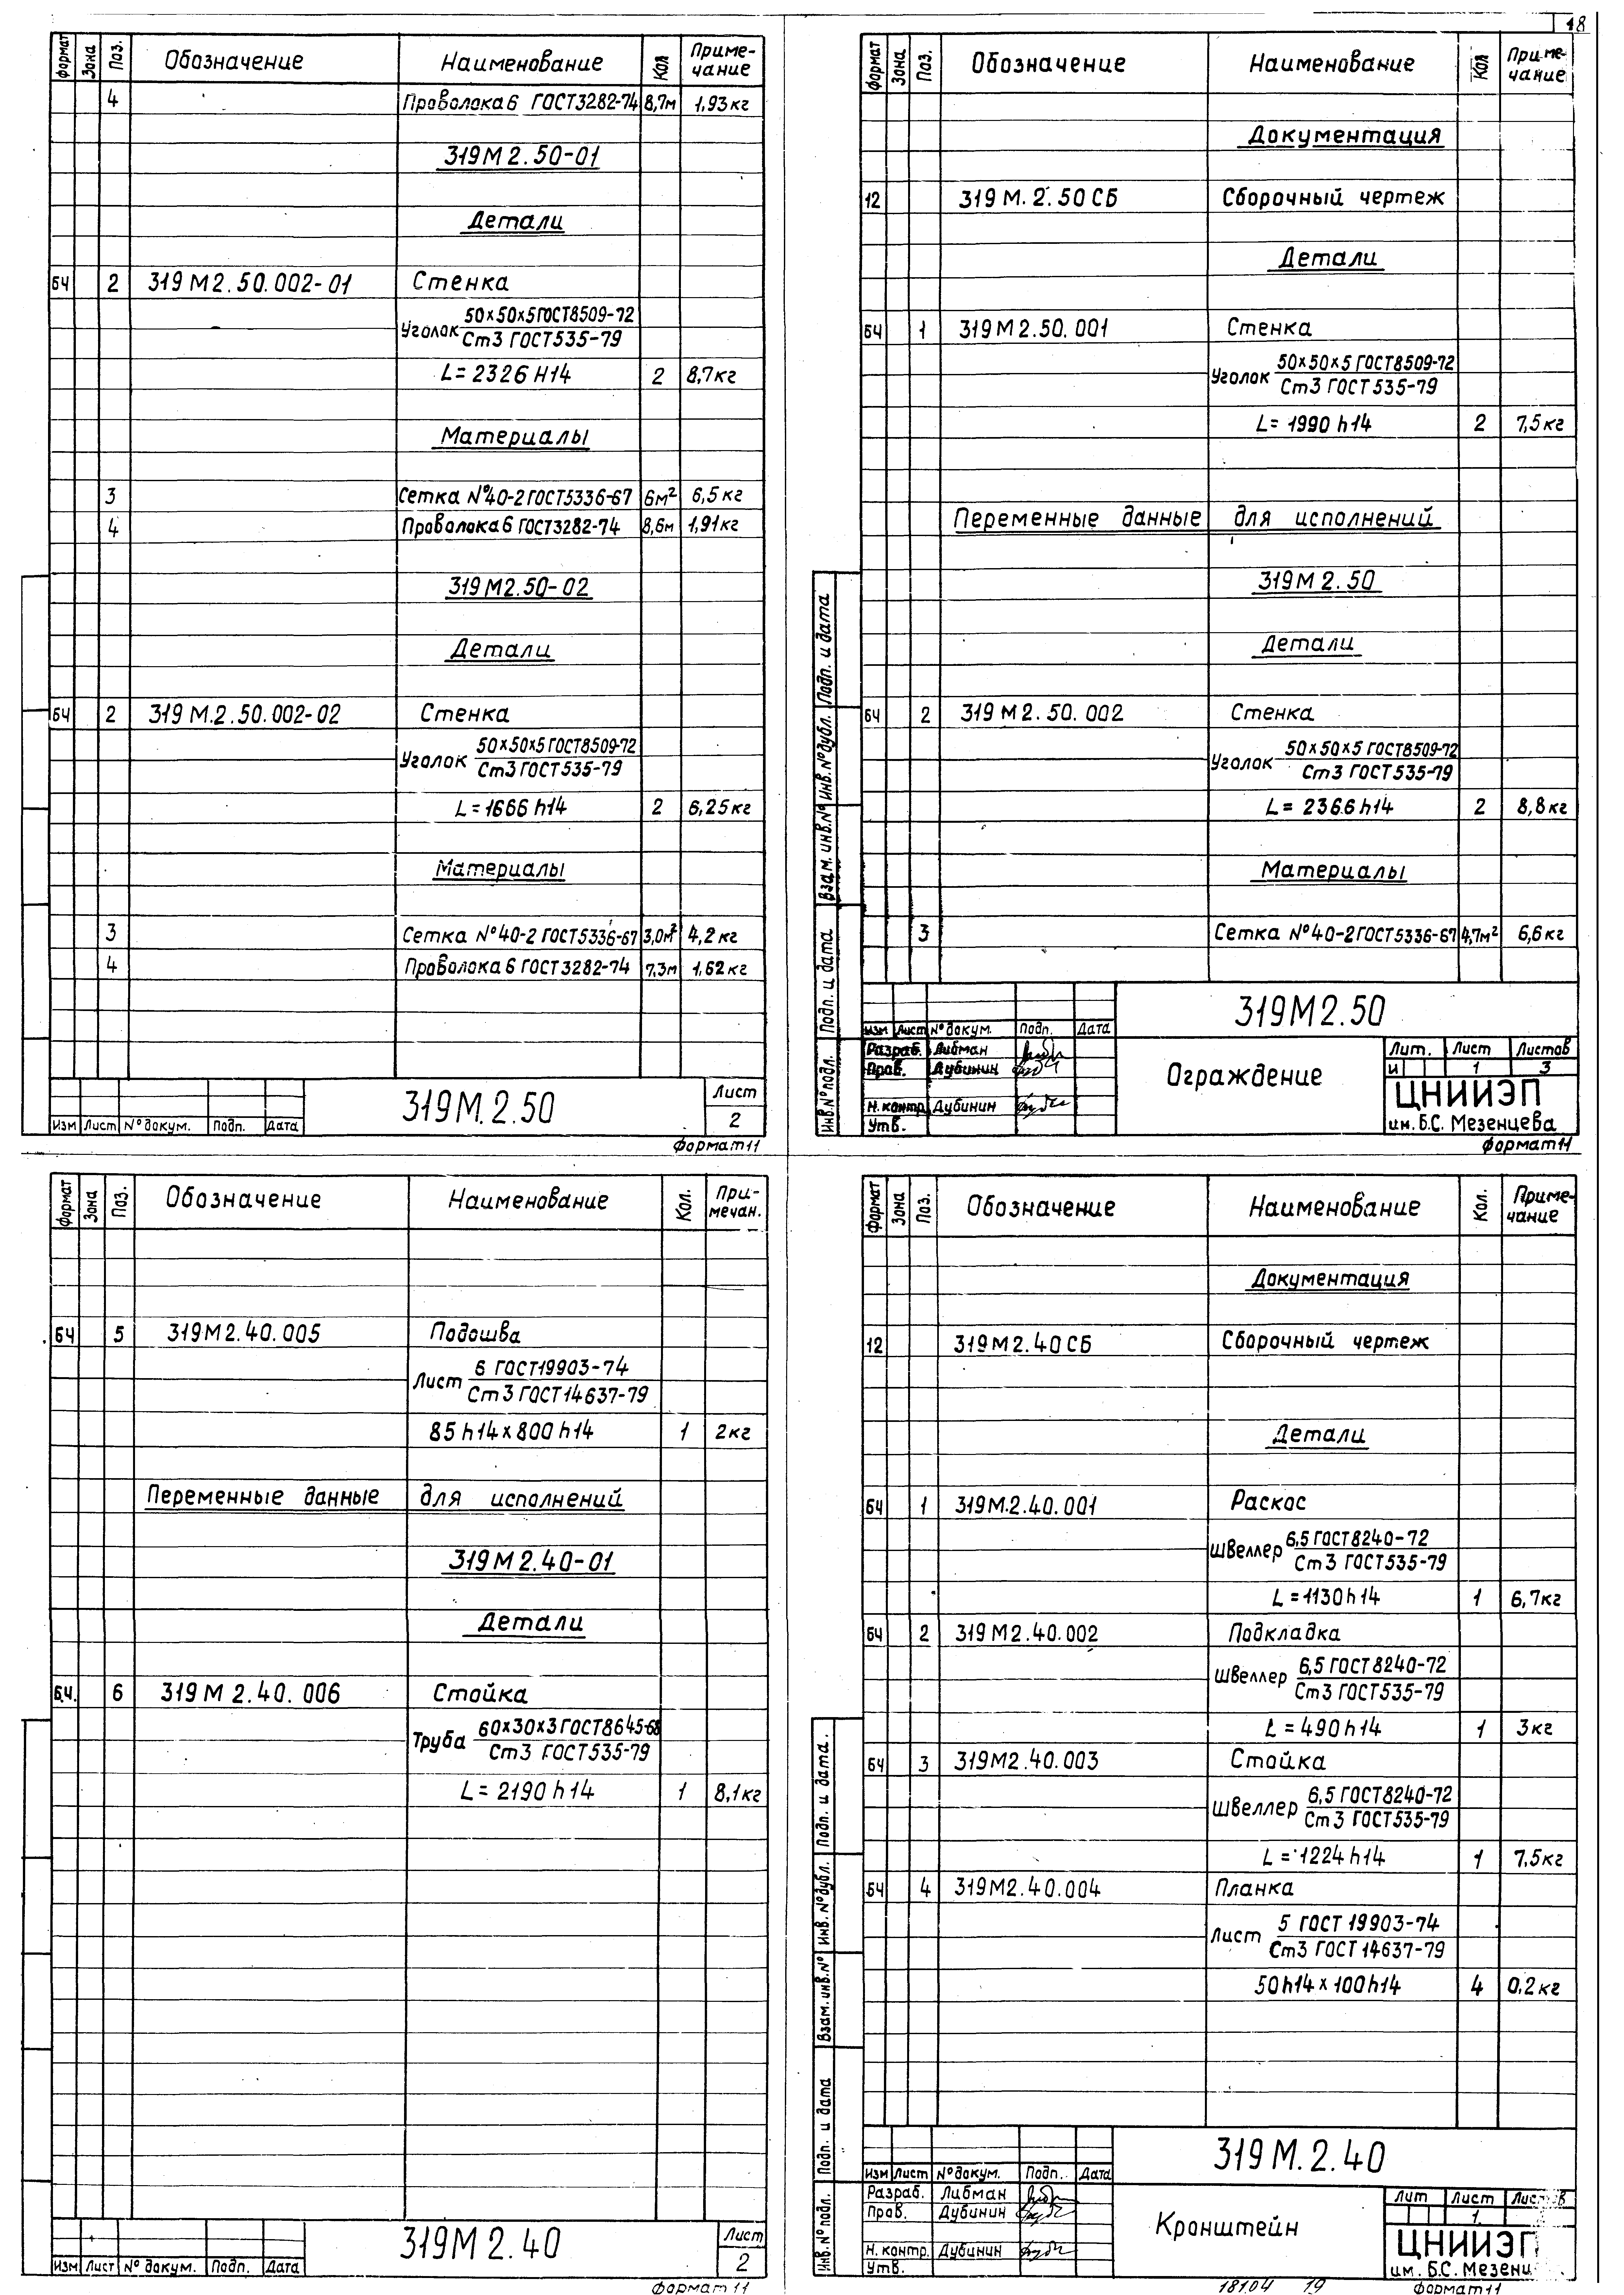 18
Формат Зона Поз. Обозначение Наименование Кол Примечание
4 Проволока 6 ГОСТ3282-74 8,7м 1,93кг
319М2.50-01
Детали
БЧ 2 319М2.50.002-01 Стенка
Уголок 50х50х5ГОСТ8509-72
Ст3 ГОСТ535-79
L=2326 Н14 2 8,7кг
Материалы
3 Сетка №40-2ГОСТ5336-67 6м² 6,5кг
4 Проволока 6 ГОСТ3282-74 8,6м 1,91кг
319М2.50-02
Детали
БЧ 2 319М.2.50.002-02 Стенка
Уголок 50х50х5ГОСТ8509-72
Ст3 ГОСТ535-79
L=1666 h14 2 6,25кг
Материалы
3 Сетка №40-2 ГОСТ5336-67 3,0м² 4,2кг
4 Проволока 6 ГОСТ3282-74 7,3м 1,62кг
319М.2.50
Лист
2
Изм Лист №докум. Подп. Дата
Формат11
Формат Зона Поз. Обозначение Наименование Кол Примечание
Документация
12 319М.2.50СБ Сборочный чертеж
Детали
БЧ 1 319М2.50.001 Стенка
Уголок 50х50х5 ГОСТ8509-72
Ст3 ГОСТ535-79
L=1990 h14 2 7,5кг
Переменные данные для исполнений
319М2.50
Детали
БЧ 2 319М2.50.002 Стенка
Уголок 50х50х5 ГОСТ8509-72
Ст3 ГОСТ535-79
L=2366h14 2 8,8кг
Материалы
3 Сетка №40-2ГОСТ5336-67 4,7м² 6,6кг
Инв.№подл. Подп. и дата Взам. инв.№ Инв.№дубл. Подп. и дата
319М2.50
Изм Лист №докум. Подп. Дата
Разраб. Либман
Пров. Дубинин
Н.контр. Дубинин
Утв.
Ограждение
Лит. Лист Листов
И 1 3
ЦНИИЭП
им. Б.С. Мезенцева
Формат11
Формат Зона Поз. Обозначение Наименование Кол. Примечан.
БЧ 5 319М2.40.005 Подошва
Лист 6 ГОСТ19903-74
Ст3 ГОСТ14637-79
85h14х800h14 1 2кг
Переменные данные для исполнений
319М2.40-01
Детали
Б.Ч. 6 319М2.40.006 Стойка
Труба 60х30х3ГОСТ8645-68
Ст3 ГОСТ535-79
L=2190h14 1 8,1кг
319М2.40
Лист
2
Изм Лист № докум. Подп. Дата
Формат 11
Формат Зона Поз. Обозначение Наименование Кол. Примечание
Документация
12 319М2.40СБ Сборочный чертеж
Детали
БЧ 1 319М.2.40.001 Раскос
Швеллер 6,5 ГОСТ8240-72
Ст3 ГОСТ535-79
L=1130h14 1 6,7кг
БЧ 2 319М2.40.002 Подкладка
Швеллер 6,5 ГОСТ8240-72
Ст3 ГОСТ535-79
L=490h14 1 3кг
БЧ 3 319М2.40.003 Стойка
Швеллер 6,5 ГОСТ8240-72
Ст3 ГОСТ535-79
L=1224h14 1 7,5кг
БЧ 4 319М2.40.004 Планка
Лист 5 ГОСТ 19903-74
Ст3 ГОСТ14637-79
50h14х100h14 4 0,2кг
Инв.№подл. Подп. и дата Взам. инв.№ Инв.№дубл. Подп. и дата.
319М.2.40
Изм Лист №докум. Подп. Дата
Разраб. Либман
Пров. Дубинин
Н.контр. Дубинин
Утв.
Кронштейн
Лит Лист
1
ЦНИИЭП
им. Б.С. Мезенц
18104 19 Формат11